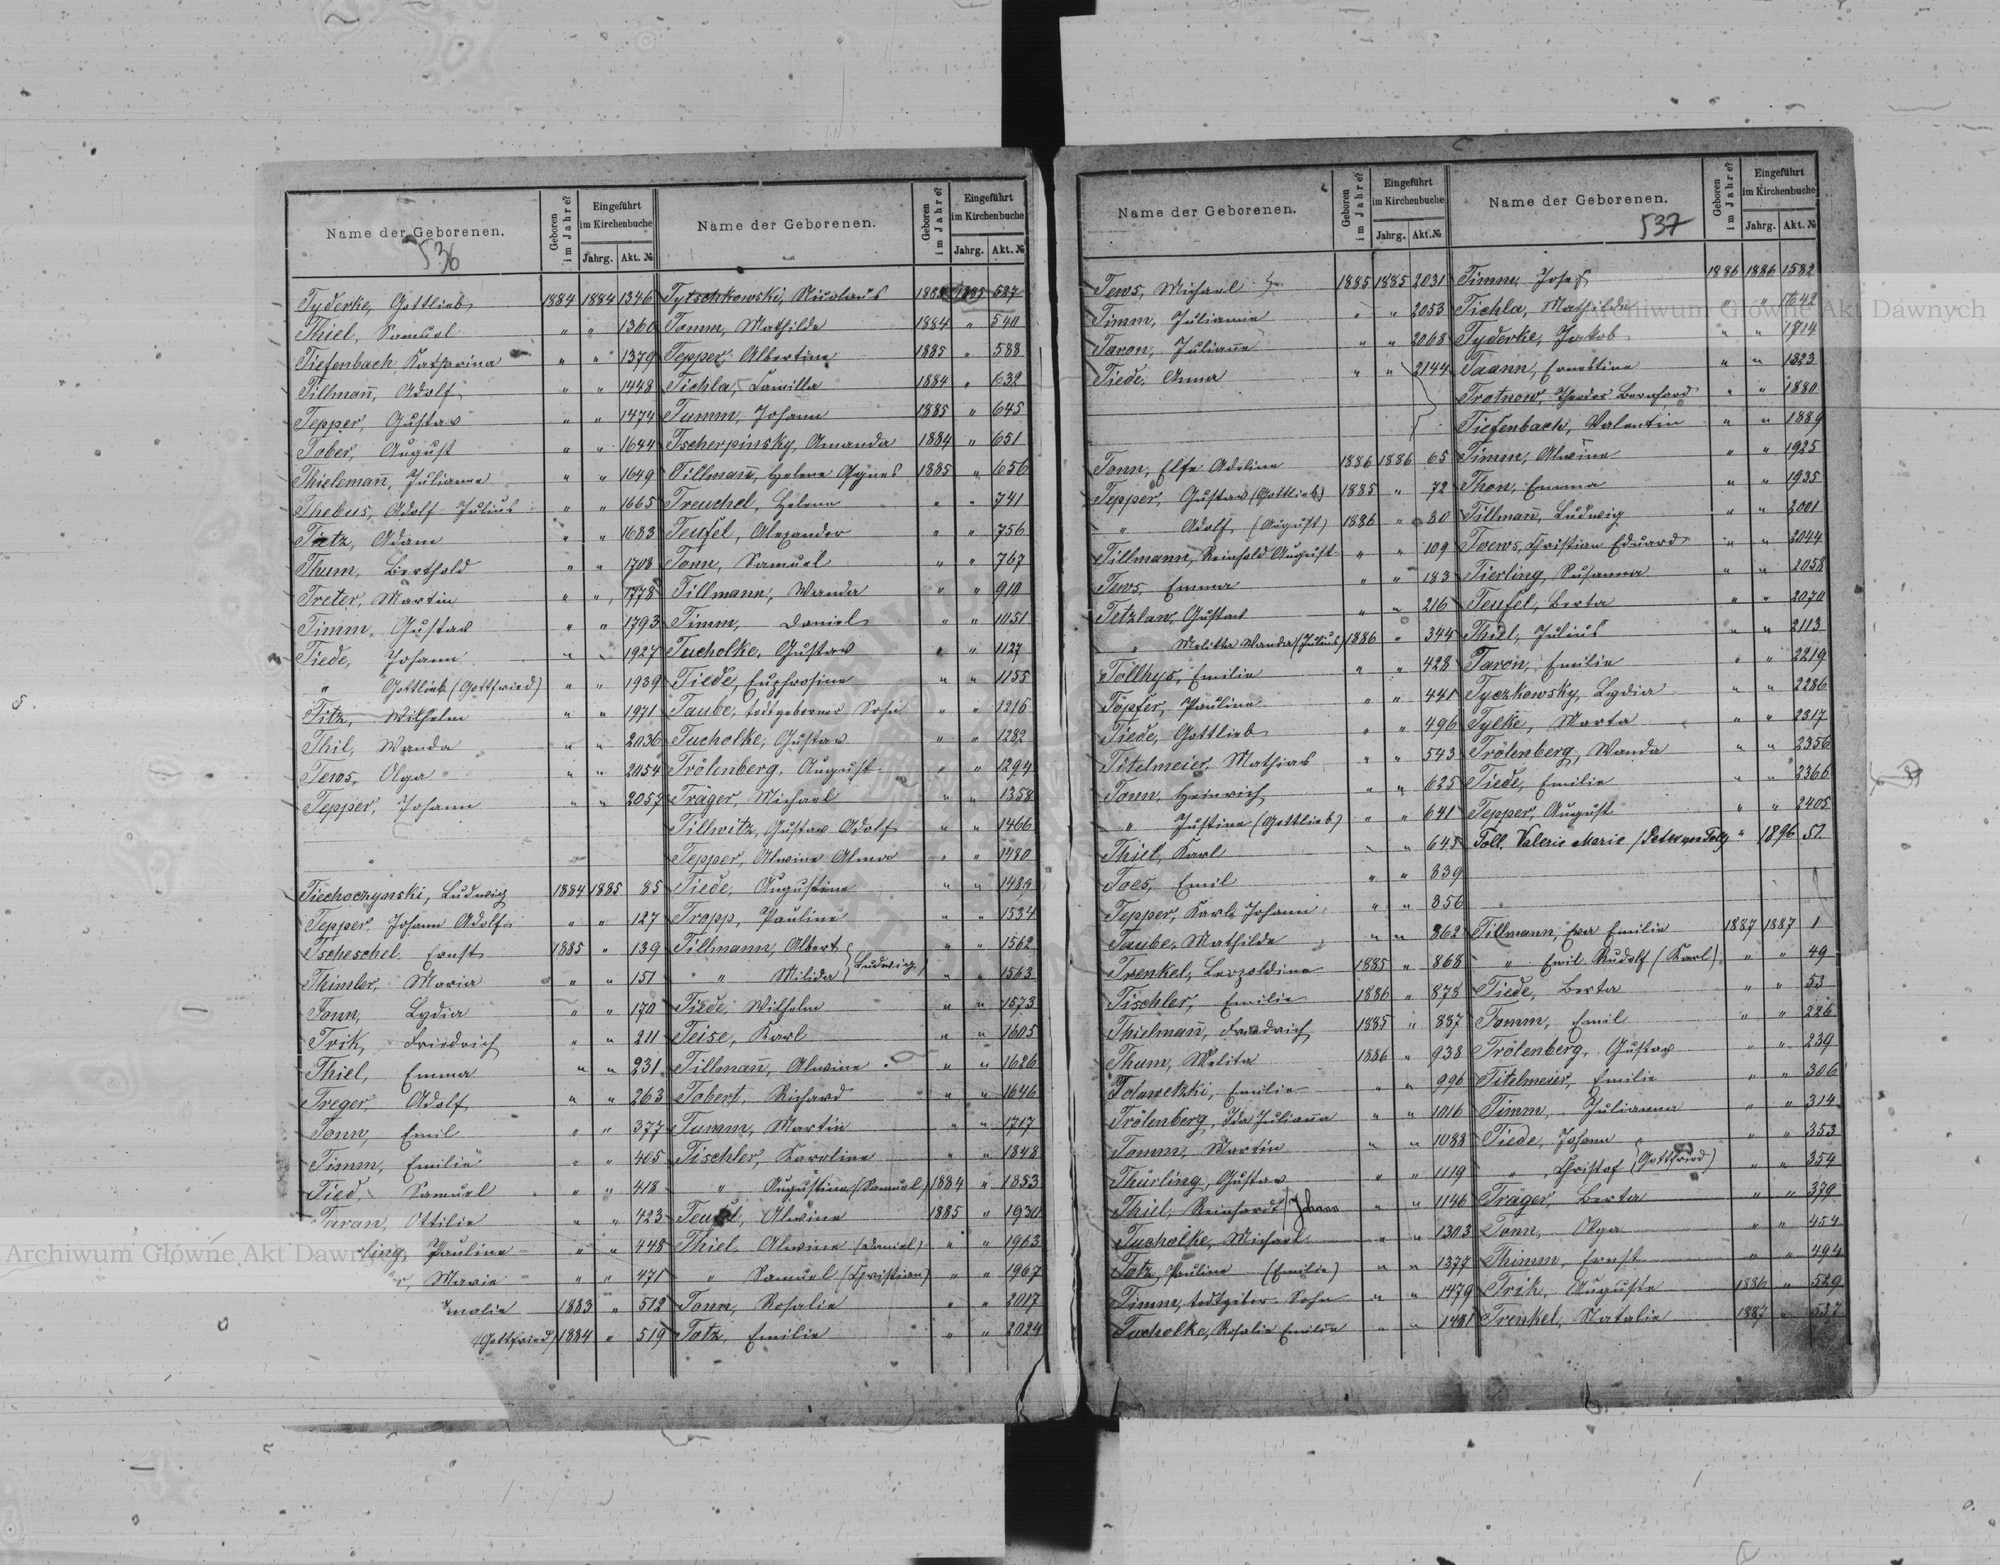 Name der Geborenen.
Geboren im Jahre?
Eingeführt im Kirchenbuche
Jahrg. Akt. №
536
Tyderke, Gottlieb 1884 1884 1346
Thiel, Samuel " " 1360
Tiefenbach Katharina " " 1379
Tillmañ, Adolf " " 1448
Tepper, Gustav " " 1474
Tober, August " " 1644
Thielemañ, Julianna " " 1649
Thebus, Adolf Julius " " 1665
Tietz, Adam " " 1683
Thum, Berthold " " 1708
Treter, Martin " " 1778
Timm, Gustav " " 1793
Tiede, Johann " " 1927
" Gottlieb (Gottfried) " " 1939
Titz, Wilhelm " " 1971
Thil, Wanda " " 2036
Tews, Olga " " 2054
Tepper, Johann " " 2057
Tiechoczynski, Ludwig 1884 1885 85
Tepper, Johann Adolf " " 127
Tscheschel, Ernst 1885 " 139
Thimler, Maria " " 151
Tonn, Lydia " " 170
Trik, Friedrich " " 211
Thiel, Emma " " 231
Treger, Adolf " " 263
Tonn, Emil " " 377
Timm, Emilie " " 405
Tied, Samuel " " 418
Taran, Ottilie " " 423
Pauline " " 448
Marie " " 471
1883 " 512
Gottfried) 1884 " 519
Name der Geborenen.
Geboren im Jahre?
Eingeführt im Kirchenbuche
Jahrg. Akt. №
Tytschkowski, Nicolaus 1885 1885 537
Tomm, Mathilde 1884 " 540
Tepper Albertine 1885 " 588
Tichla, Camilla 1884 " 632
Tumm, Johann 1885 " 645
Tscherpinsky, Amanda 1884 " 651
Tillmañ, Helene Agnes 1885 " 656
Treuchel, Helena " " 741
Teufel, Alexander " " 756
Tonn, Samuel " " 767
Tillmann, Wanda " " 910
Timm, Daniel " " 1051
Tucholke, Gustav " " 1127
Tiede, Euphrosine " " 1155
Taube, todtgeborner Sohn " " 1216
Tucholke, Gustav " " 1282
Trölenberg, August " " 1294
Träger, Michael " " 1358
Tillwitz, Gustav Adolf " " 1466
Tepper, Alwine Alma " " 1480
Tiede, Augustine " " 1489
Trapp, Pauline " " 1534
Tillmann, Albert " " 1562
" Milida (Ludwig) " " 1563
Tiede, Wilhelm " " 1573
Teise, Karl " " 1605
Tillmañ, Alwine " " 1626
Tobert, Richard " " 1646
Tumm, Martin " " 1717
Tischler, Karoline " " 1848
" Augustine (Samuel) 1884 " 1853
Teufel, Alwine 1885 " 1930
Thiel, Alwine (Daniel) " " 1963
" Samuel (Christian) " " 1967
Tonn, Rosalie " " 2017
Totz, Emilie " " 2024
Name der Geborenen.
Geboren im Jahre?
Eingeführt im Kirchenbuche
Jahrg. Akt. №
Tews, Michael 1885 1885 2031
Timm, Julianna " " 2053
Taron, Juliañe " " 2068
Tiede, Anna " " 2144
Tonn, Elfe Adeline 1886 1886 65
Tepper, Gustav (Gottlieb) 1885 " 72
" Adolf, (August) 1886 " 80
Tillmann, Reinhold August " " 109
Tews, Emma " " 183
Tetzlaw, Gustav " " 216
" Melitta Wanda (Julius) 1886 " 344
Tollhys, Emilie " " 428
Töpfer, Pauline " " 441
Tiede, Gottlieb " " 496
Titelmeier, Mathias " " 543
Tonn, Heinrich " " 625
" Justine (Gottlieb) " " 641
Thiel, Karl " " 645
Toes, Emil " " 839
Tepper, Karl Johann " " 856
Taube, Mathilde " " 862
Trenkel, Leopoldine 1885 " 868
Tischler, Emilie 1886 " 878
Thielmañ, Friedrich 1885 " 887
Thum, Melita 1886 " 938
Tolawetzki, Emilie " " 996
Trölenberg, Ida Juliaña " " 1016
Tomm, Martin " " 1088
Thürling, Gustav " " 1119
Thiel, Reinhardt / Johann " " 1146
Tucholke, Michael " " 1303
Totz, Pauline (Emilie) " " 1377
Timm, todtgeber. Sohn " " 1479
Tucholke, Rosalie Emilie " " 1481
Name der Geborenen.
Geboren im Jahre?
Eingeführt im Kirchenbuche
Jahrg. Akt. №
537
Timm, Josef 1886 1886 1582
Tichla, Mathilde " " 1642
Tyderke, Jakob " " 1714
Taann, Ernestine " " 1823
Trotnow, Theodor Bernhard " " 1880
Tiefenbach, Valentin " " 1889
Timm, Alwine " " 1925
Thon, Emma " " 1935
Tillmañ, Ludwig " " 2001
Toews, Christian Eduard " " 2044
Tierling, Susanna " " 2058
Teufel, Berta " " 2070
Thiel, Julius " " 2113
Taron, Emilie " " 2219
Tyczkowsky, Lydia " " 2286
Tylke, Marta " " 2317
Trölenberg, Wanda " " 2356
Tiede, Emilie " " 2366
Tepper, August " " 2405
Toll, Valerie Marie / Peter von Toll) " 1896 57
Tillmann, Ewa Emilie 1887 1887 1
" Emil Rudolf (Karl) " " 49
Tiede, Berta " " 53
Tomm, Emil " " 226
Trölenberg, Gustav " " 239
Titelmeier, Emilie " " 306
Timm, Julianna " " 314
Tiede, Johann " " 353
" Christof (Gottfried) " " 354
Träger, Berta " " 379
Tonn, Olga " " 454
Thimm, Ernst " " 494
Trik, Auguste 1886 " 529
Trenkel, Natalie 1887 " 537
Archiwum Główne Akt Dawnych
Archiwum Główne Akt Dawnych